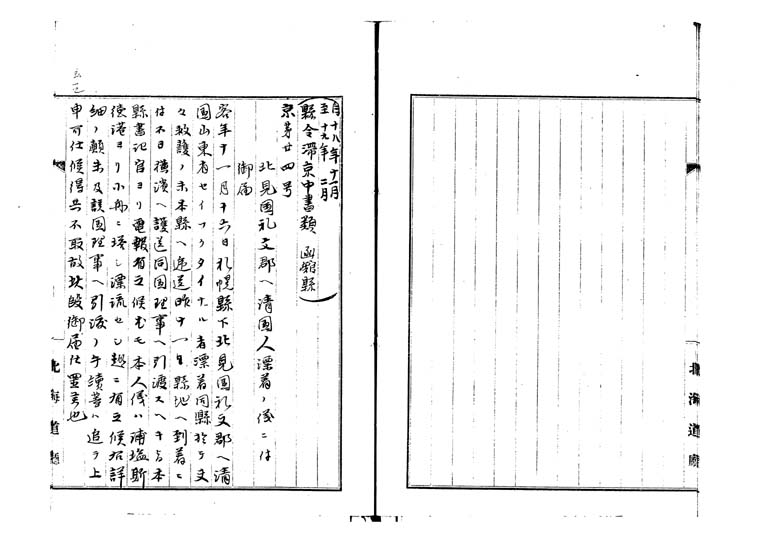 自十八年十一月
至十九年二月
(縣令滞京中書類 函館縣)
京第廿四号
北見國礼文郡ヘ清国人漂着ノ儀ニ付
御届
客年十一月十六日札幌縣下北見国礼文郡ヘ清
国山東省セイフクタイナル者漂着同縣於テ
々救護ノ末本縣ヘ逓送昨十一日縣地ヘ到着ニ
付不日横濱ヘ護送同国理事ヘ引渡スヘキ旨本
縣書記官ヨリ電報有之候尤モ本人儀ハ浦塩斯
徳港ヨリ小舟ニ搭シ漂流セシ趣ニ有之候右詳
細ノ顛末及該国理事ヘ引渡ノ手續等ハ追テ上
申可仕候得共不取敢此段御届仕置候也
北海道廳
北海道廳